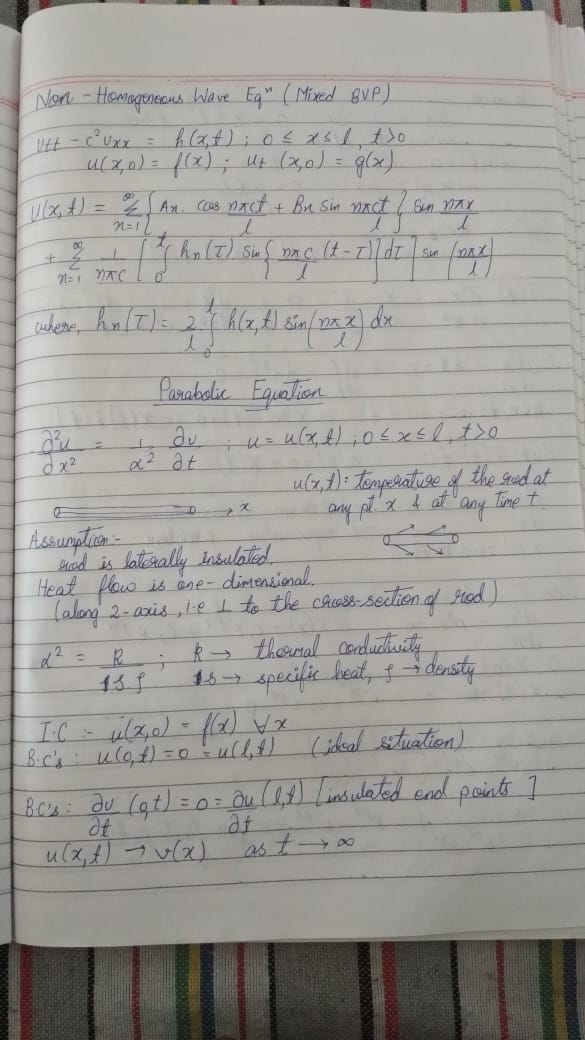 Non - Homogeneous Wave Eqⁿ (Mixed BVP)
Utt - c²Uxx = h(x,t) ; 0 ≤ x ≤ l, t>0
u(x,0) = f(x) ; ut (x,0) = g(x)
U(x,t) = ∞Σn=1 { An. cos nπct/l + Bn sin nπct/l } sin nπx/l
+ ∞Σn=1 1/nπc [ ∫₀ᵗ hn(τ) sin { nπc/l (t-τ) } dτ ] sin (nπx/l)
where, hn(τ) = 2/l ∫₀ˡ h(x,t) sin(nπx/l) dx
Parabolic Equation
∂²u/∂x² = 1/α² ∂u/∂t ; u = u(x,t) ; 0 ≤ x ≤ l, t>0
u(x,t) : temperature of the rod at
any pt. x & at any time t
x
Assumption :-
rod is laterally insulated.
Heat flow is one-dimensional.
(along 2-axis, i.e ⊥ to the cross-section of rod)
α² = k/(s ρ) ; k → thermal conductivity
s → specific heat, ρ → density
I.C :- u(x,0) = f(x) ∀x
B.C's : u(0,t) = 0 = u(l,t) (ideal situation)
B.C's : ∂u/∂t (0,t) = 0 = ∂u/∂t (l,t) [insulated end points]
u(x,t) → v(x) as t → ∞